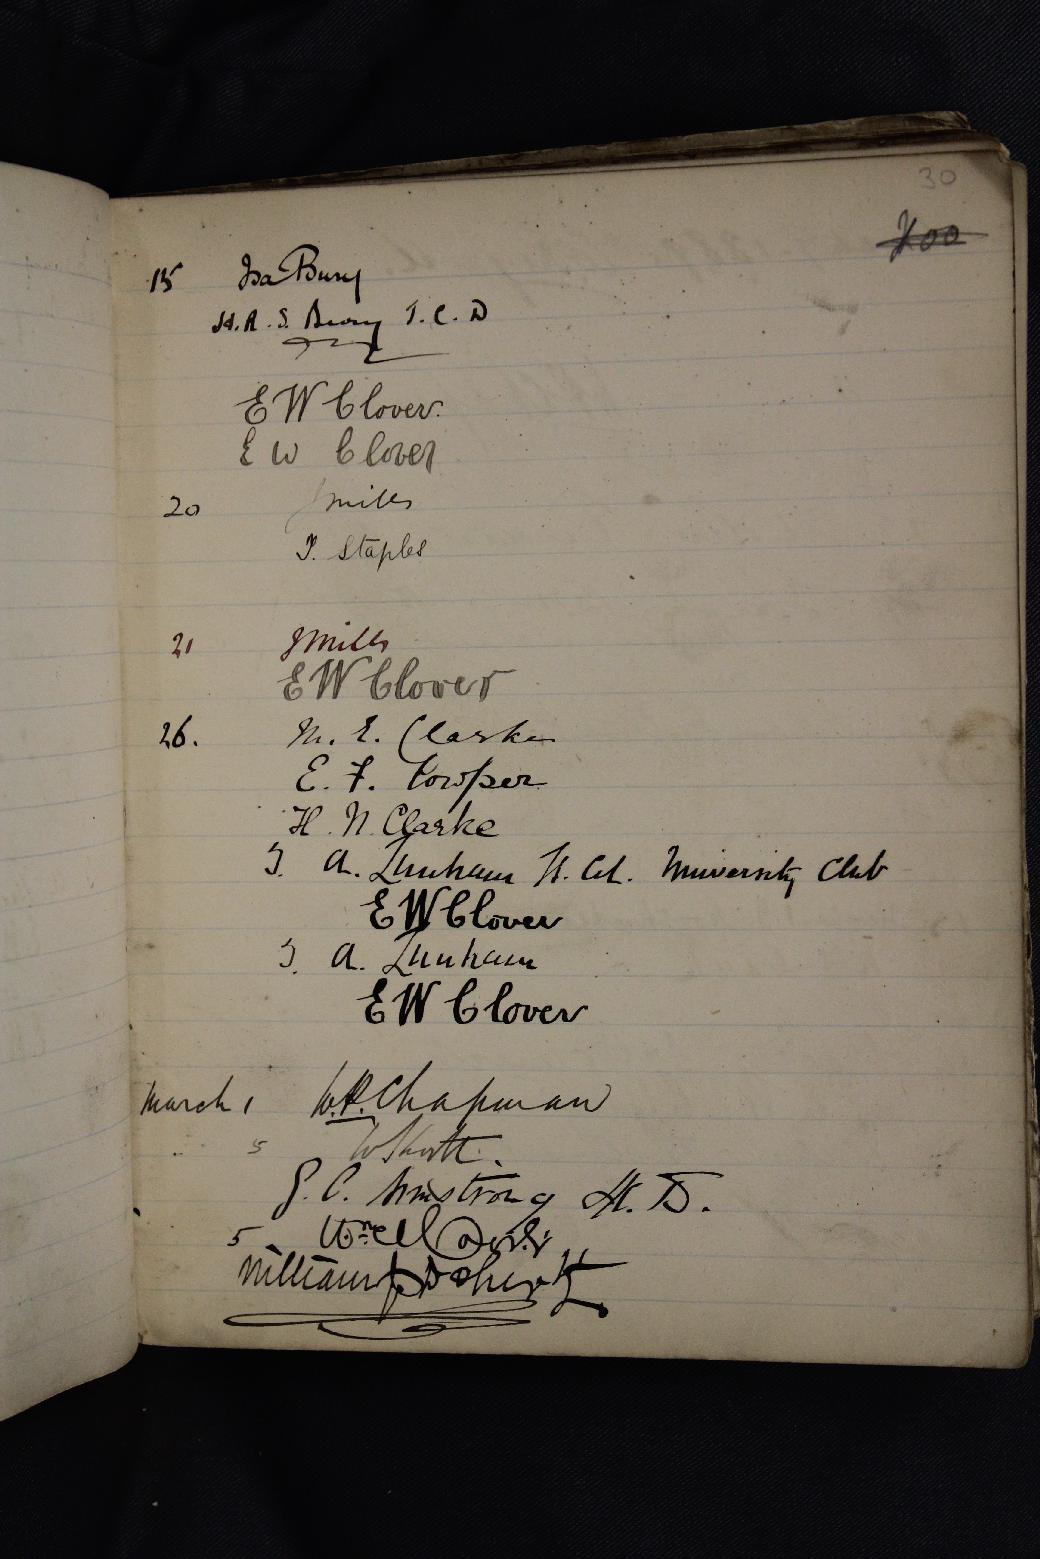 30
15 Isa Bury
H. A. S. Bury T. C. D
E W Clover.
E W Clover
20 J Mills
T. Staples
21 J Mills
E W Clover
26. M. E. Clarke
E. F. Cowper
H. N. Clarke
T. A. Lunham University Club
E W Clover
T. A. Lunham
E W Clover
March 1 W. P. Chapman
" 5
G. C. Armstrong
5
William J Doherty